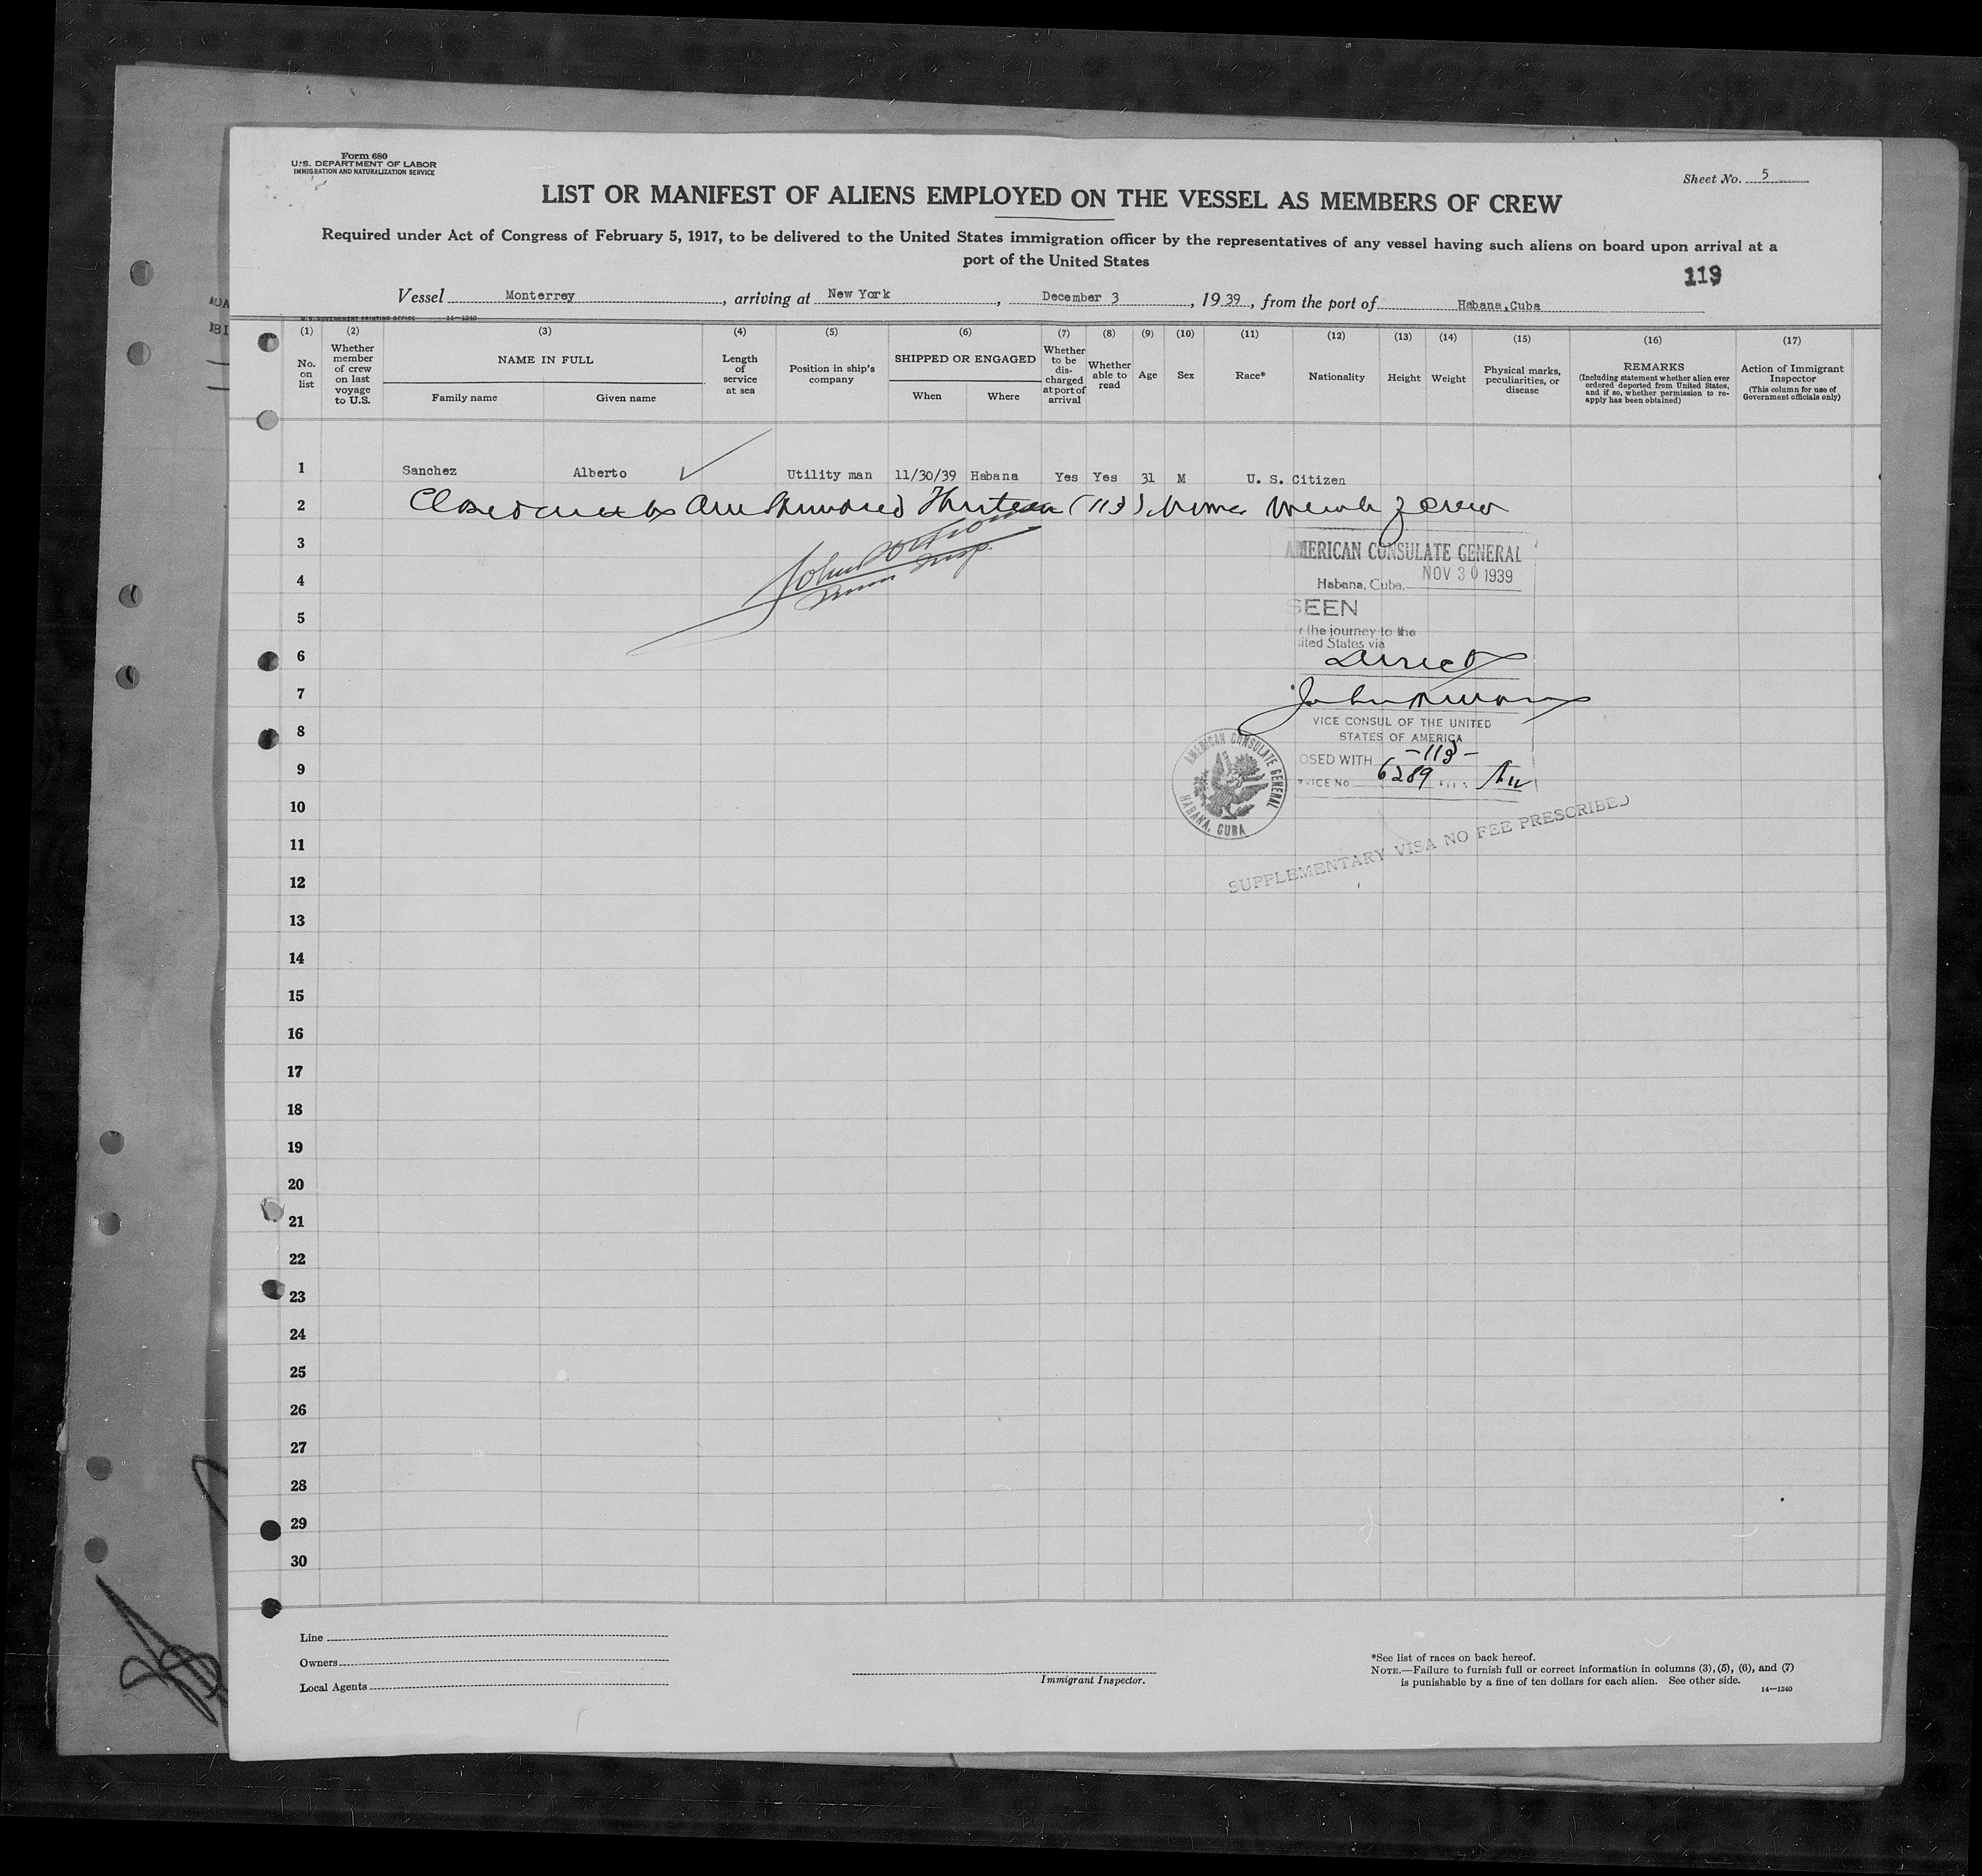 Form 680
U.S. DEPARTMENT OF LABOR
IMMIGRATION AND NATURALIZATION SERVICE
Sheet No. 5
LIST OR MANIFEST OF ALIENS EMPLOYED ON THE VESSEL AS MEMBERS OF CREW
Required under Act of Congress of February 5, 1917, to be delivered to the United States immigration officer by the representatives of any vessel having such aliens on board upon arrival at a
port of the United States
119
Vessel Monterrey, arriving at New York, December 3, 1939, from the port of Habana,Cuba
U.S. GOVERNMENT PRINTING OFFICE 14—1240
(1) (2) (3) (4) (5) (6) (7) (8) (9) (10) (11) (12) (13) (14) (15) (16) (17)
No. on list
Whether member of crew on last voyage to U.S.
NAME IN FULL
Family name
Given name
Length of service at sea
Position in ship's company
SHIPPED OR ENGAGED
When
Where
Whether to be discharged at port of arrival
Whether able to read
Age
Sex
Race*
Nationality
Height
Weight
Physical marks, peculiarities, or disease
REMARKS
(Including statement whether alien ever ordered deported from United States, and if so, whether permission to re-apply has been obtained)
Action of Immigrant Inspector
(This column for use of Government officials only)
1 Sanchez Alberto Utility man 11/30/39 Habana Yes Yes 31 M U. S. Citizen
2 One Hundred Thirteen (113) crew
3
AMERICAN CONSULATE GENERAL
NOV 30 1939
4
Habana, Cuba,
SEEN
5
r the journey to the
ited States via
6
Direct
7
John
VICE CONSUL OF THE UNITED
STATES OF AMERICA
8
OSED WITH -113-
9
VICE No 6289
AMERICAN CONSULATE GENERAL
HABANA, CUBA
10
SUPPLEMENTARY VISA NO FEE PRESCRIBED
11
12
13
14
15
16
17
18
19
20
21
22
23
24
25
26
27
28
29
30
Line
Owners
Local Agents
Immigrant Inspector.
*See list of races on back hereof.
NOTE.—Failure to furnish full or correct information in columns (3), (5), (6), and (7)
is punishable by a fine of ten dollars for each alien. See other side.
14—1240